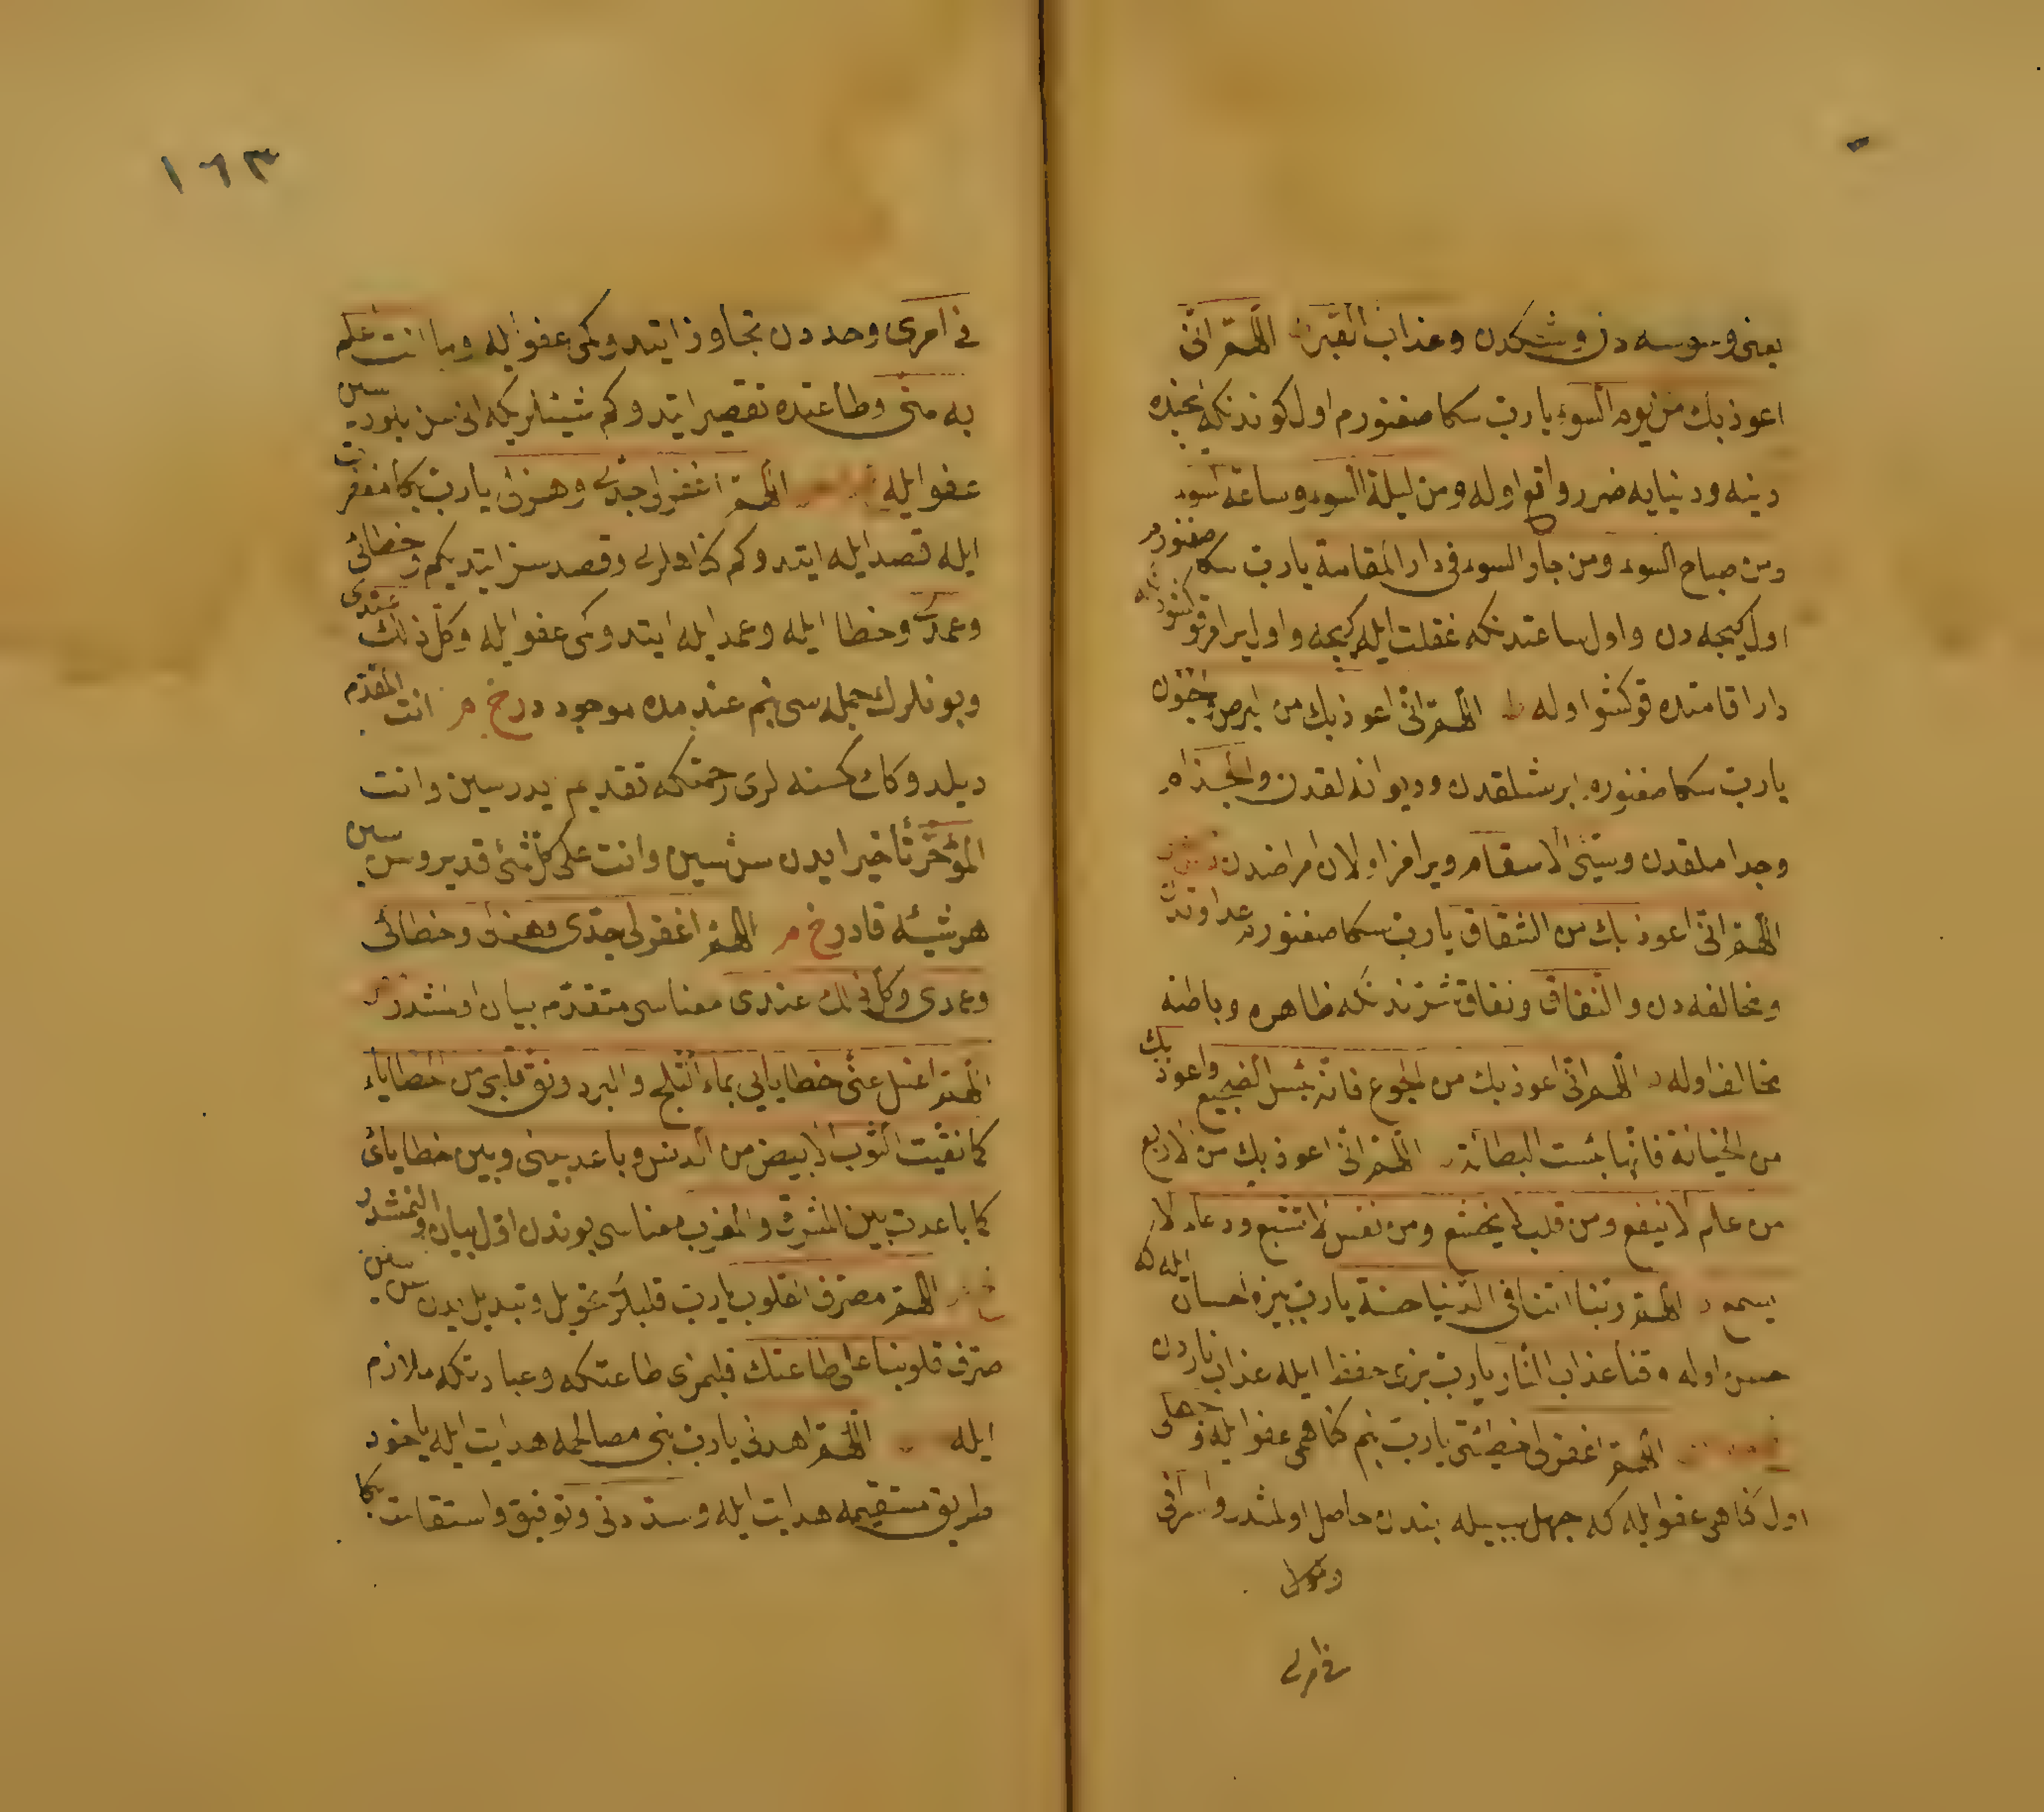 يعنى وسوسه دن وشكدن وعذاب القبر اللهم انى
اعوذ بك من يوم السوء يارب سكا صغنورم اول كوندنكه انجنده
دينه ودنيايه ضرر واقع اوله ومن ليلة السوء وساعة السوء
ومن صباح السوء ومن جار السوء فى دار المقامة يارب سكا صغنورم
اول كيجه دن واول ساعتدنكه غفلت ايله كيچه واول يرامز قوكشودنكه
دار اقامتده قوكشو اوله اللهم انى اعوذ بك من البرص والجنون
يارب سكا صغنورم ابرشلقدن وديوانه لقدن والجذام
وجداملقدن وسيئ الاسقام ويرامز اولان امراضدن
اللهم انى اعوذ بك من الشقاق يارب سكا صغنورم عداوتدن
ومخالفه دن والنفاق ونفاق شرندنكه ظاهره وباطنه
مخالف اوله اللهم انى اعوذ بك من الجوع فانه بئس الضجيع واعوذ بك
من الخيانة فانها بئست البطانة اللهم انى اعوذ بك من الاربع
من علم لا ينفع ومن قلب لا يخشع ومن نفس لا تشبع ودعاء لا
يسمع اللهم ربنا اتنا فى الدنيا حسنة يارب بيزه احسان ايله كه
حسن اوله وقنا عذاب النار يارب بزى حفظ ايله عذاب ناردن
اللهم اغفر لى خطيئتى يارب بنم كناهمى عفو ايله وجهلى
اول كناهمى عفو ايله كه جهل سببيله بندن حاصل اولمشدر واسرافى
فى امرى
فى امرى وحددن تجاوز ايتدوكمى عفو ايله وما انت اعلم
به منى وطاعتده تقصير ايتدوكم شيئلريكه انى سن بلورسين
عفو ايله اللهم اغفر لى جدى وهزلى يارب بكا مغفرت
ايله قصد ايله ايتدوكم كناهلرى وقصدسز ايتديكم وخطائى
وعمدى وخطا ايله وعمد ايله ايتدوكمى عفو ايله وكل ذلك عندى
وبونلرك جمله سى بنم عندمده موجوددر خ م انت المقدم
ديلدوكك كسنه لرى رحمتكه تقديم ايدرسين وانت
المؤخر تأخير ايدن سنسين وانت على كل شئ قدير وسن سين
هر شيئه قادر خ م اللهم اغفر لى جدى وهزلى وخطائى
وعمدى وكل ذلك عندى معناسى متقدم بيان اولنمشدر
اللهم اغسل عنى خطاياى بماء الثلج والبرد ونق قلبى من الخطايا
كما نقيت الثوب الابيض من الدنس وباعد بينى وبين خطاياى
كما باعدت بين المشرق والمغرب معناسى بوندن اول بيان اولنمشدر
اللهم مصرف القلوب يارب قلبلرى تحويل وتبديل ايدن سن سين
صرف قلوبنا على طاعتك قلبلرمزى طاعتكه وعبادتكه ملازم
ايله اللهم اهدنى يارب بنى مصالحمه هدايت ايله ياخود
طريق مستقيمه هدايت ايله وسددنى وتوفيق واستقامت بكا
١٦٣